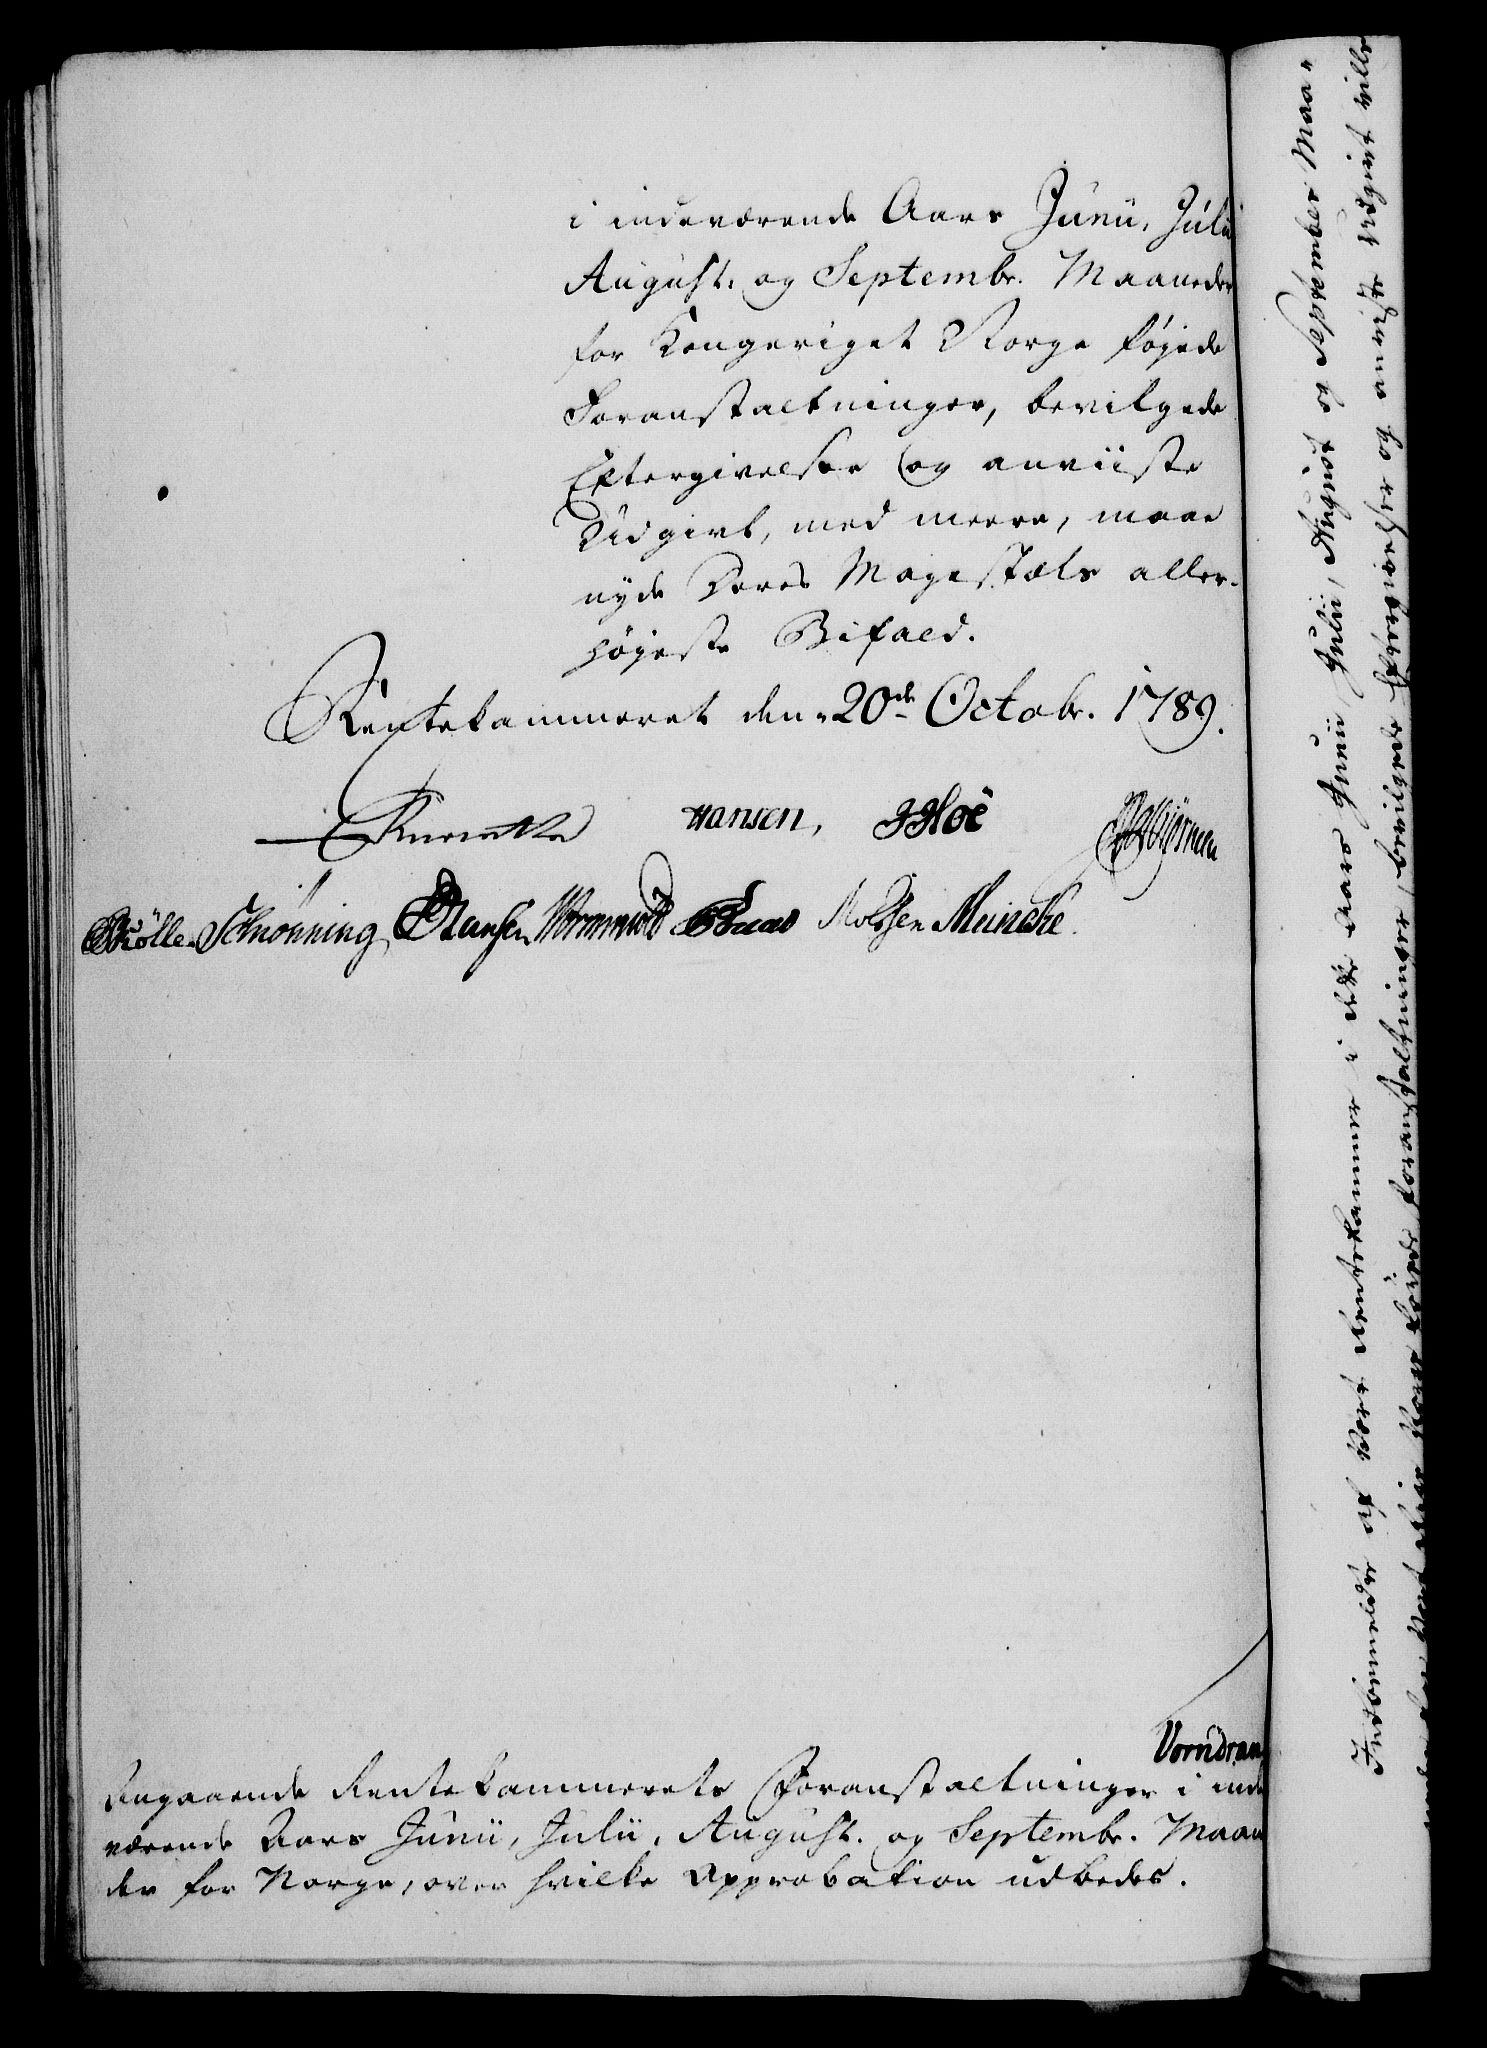 i indeværende Aars Junii, Julii
August. og Septembr. Maaneder
for Kongeriget Norge føjede
Foranstaltninger, bevilgede
Eftergivelser og anviiste
Udgivt, med meere, maae
nyde Deres Majestæts aller-
højeste Bifald.
Rentekammeret den 20de Octobr. 1789.
Hansen, Hoë
Schionning Hansen Wormwold Molssen Meincke.
Vorndran
Angaaende Rentekammerets Foranstaltninger i inde
værende Aars Junii, Julii, August. og Septembr. Maane
der for Norge, over hvilke Approbation udbedes.
Indkommelde af Vort Rentekammer i dette Aars Junii, Julii, August og September Maa-
Foranstaltninger, bevilgede Eftergivelser og anviste Udgivt ville